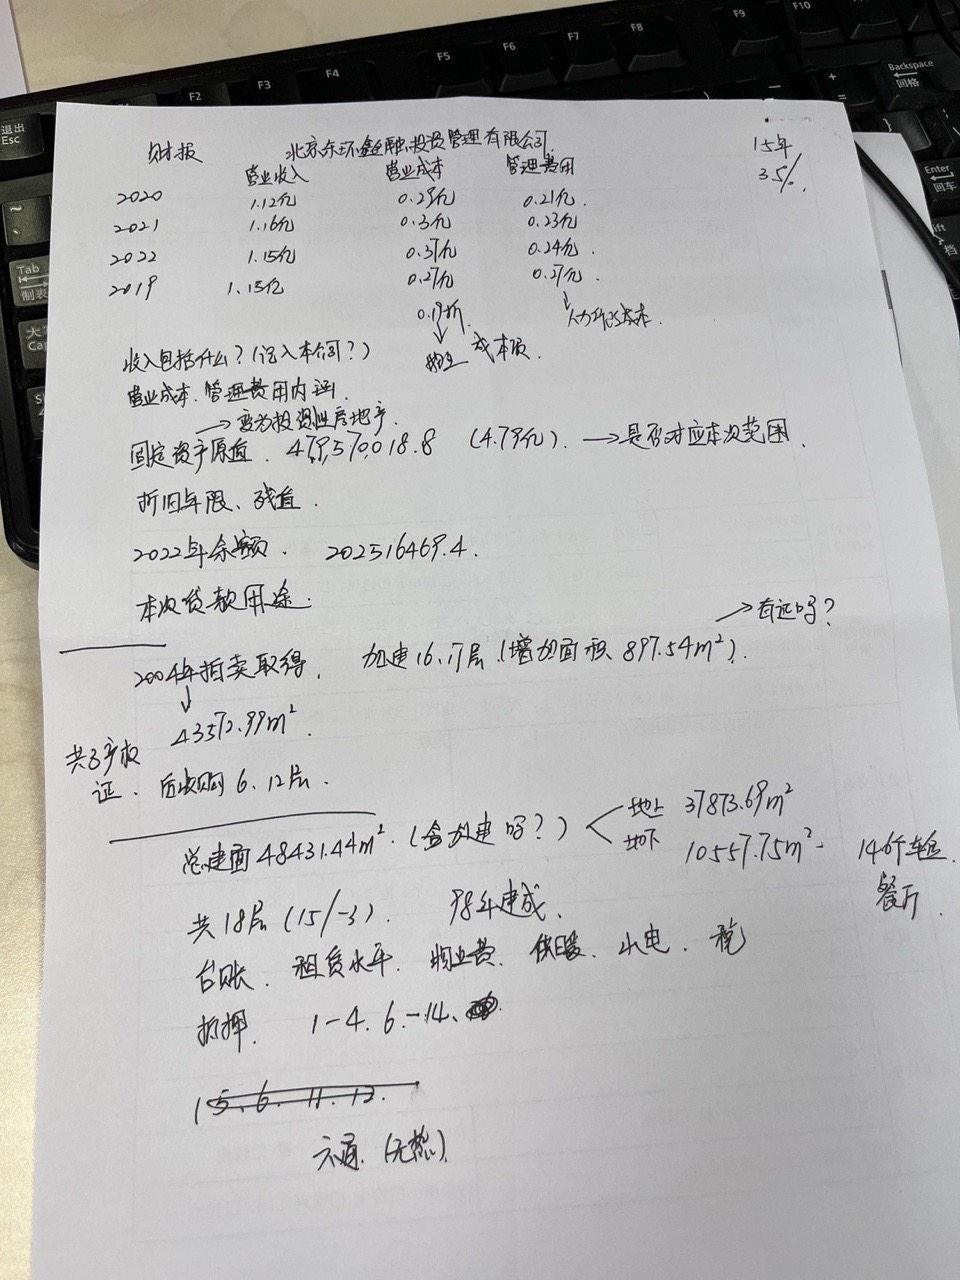 退出
Esc
F2
F3
F4
F5
F6
F7
F8
F9
F10
Backspace
回格
Enter
回车
Tab
制表
财报 北京东环鑫融投资管理有限公司 15年
营业收入 营业成本 管理费用 3.5%.
2020 1.12亿 0.29亿 0.21亿.
2021 1.16亿 0.3亿 0.23亿
2022 1.15亿 0.37亿 0.24亿.
2019 1.15亿 0.27亿 0.27亿.
0.19折. 人力 成本.
物业 成本项.
收入包括什么?(记入本公司?)
营业成本、管理费用内涵.
→变为投资性房地产.
固定资产原值. 479,570,018.8 (4.79亿). →是否对应本次范围.
折旧年限、残值.
2022年余额. 202516469.4.
本次贷款用途.
→首远吗?
2004年拍卖取得. 加建16、17层.(增加面积 897.54m²).
43572.99m².
共3产权证. 后收购6、12层.
总建面48431.44m².(含加建吗?) 地上 37873.69m²
地下 10557.75m². 146个车位
餐厅.
共18层(15/-3). 98年建成.
台账、租赁水平、物业费、供暖、水电、税
抵押. 1-4、6-14、
15、6、11、12.
六通.(无热).